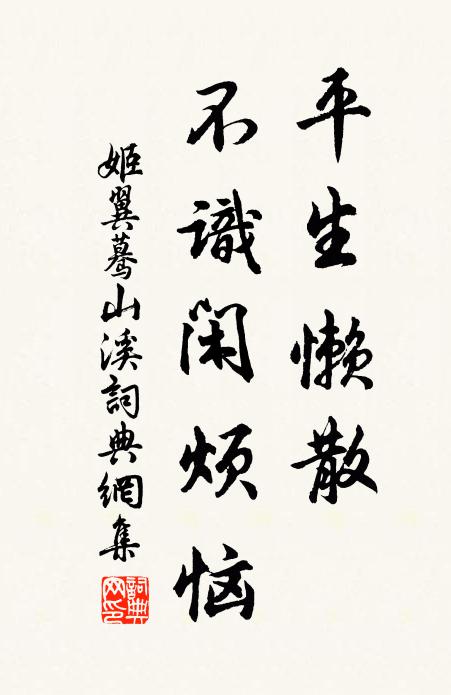 平生懒散
不識閑烦恼
姬翼驀山溪詞典網集
詞典网印